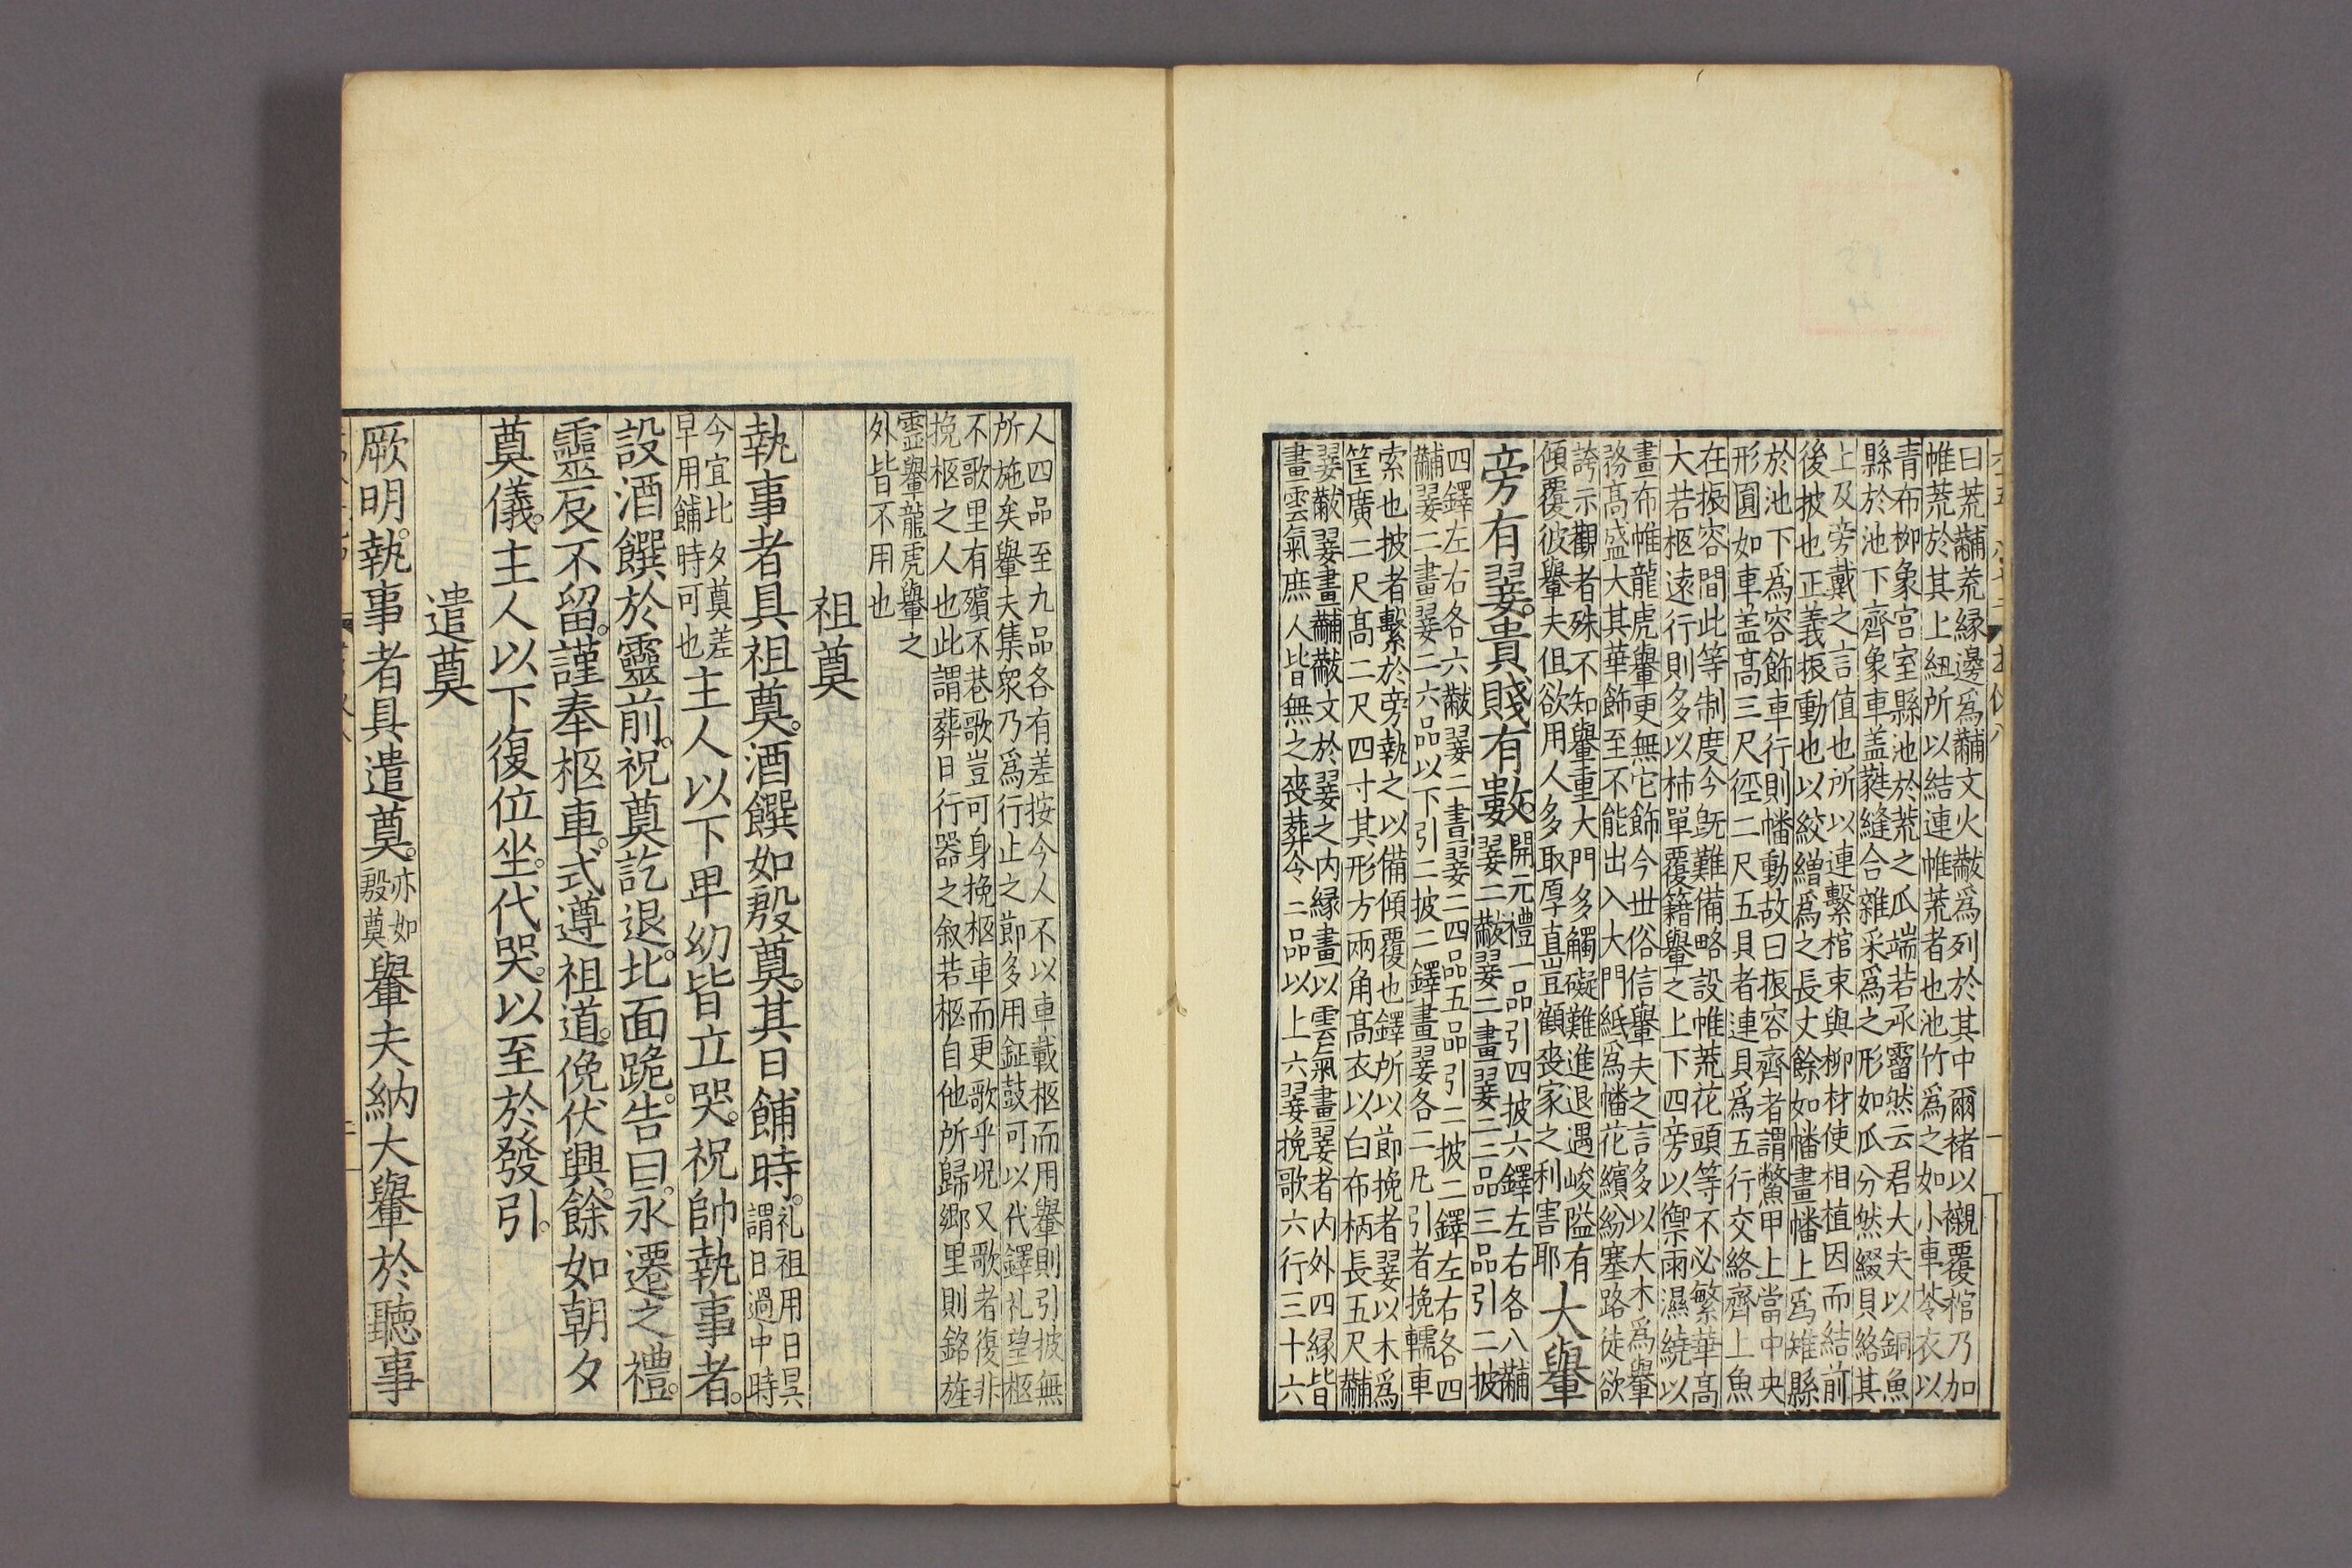 曰荒黼荒縁邊爲黼文火黻爲列於其中爾楮以襯覆棺乃加
帷荒於其上紐所以結連帷荒者也池竹爲之如小車苓衣以
青布柳象宮室縣池於荒之瓜端若承霤然云君大夫以銅魚
縣於池下齊象車盖蕤縫合雜采爲之形如瓜分然綴貝絡其
上及旁戴之言值也所以連繫棺束與柳材使相植因而結前
後披也正義振動也以絞繒爲之長丈餘如幡畫幡上爲雉縣
於池下爲容飾車行則幡動故曰振容齊者謂鱉甲上當中央
形圓如車盖髙三尺徑二尺五貝者連貝爲五行交絡齊上魚
在振容間此等制度今旣難備略設帷荒花頭等不必繁華髙
大若柩逺行則多以柿單覆籍轝之上下四旁以禦雨濕繞以
畫布帷龍虎轝更無它飾今丗俗信轝夫之言多以大木爲轝
務髙盛大其華飾至不能出入大門紙爲幡花繽紛塞路徒欲
誇示觀者殊不知轝重大門多觸礙難進退遇峻隘有
傾覆彼轝夫但欲用人多取厚直豈顧喪家之利害耶
大轝
旁有翣。貴賤有數。
開元禮一品引四披六鐸左右各八黼
翣二黻翣二畫翣二二品三品引二披
四鐸左右各六黻翣二畫翣二四品五品引二披二鐸左右各四
黼翣二畫翣二六品以下引二披二鐸畫翣各二凡引者挽轜車
索也披者繫於旁執之以備傾覆也鐸所以節挽者翣以木爲
筐廣二尺髙二尺四寸其形方兩角髙衣以白布柄長五尺黼
翣黻翣畫黼黻文於翣之内縁畫以雲氣畫翣者内外四縁皆
畫雲氣庶人皆無之喪葬令二品以上六翣挽歌六行三十六
人四品至九品各有差按今人不以車載柩而用轝則引披無
所施矣轝夫集衆乃爲行止之節多用鉦鼓可以代鐸礼望柩
不歌里有殯不巷歌豈可身挽柩車而更歌乎况又歌者復非
挽柩之人也此謂葬日行器之叙若柩自他所歸鄉里則銘旌
靈轝龍虎轝之
外皆不用也
祖奠
執事者具祖奠。酒饌如殷奠。其日餔時。
礼祖用日昃
謂日過中時
今宜比夕奠差
早用餔時可也
主人以下卑幼皆立哭。祝帥執事者。
設酒饌於靈前。祝奠訖退。北面跪。告曰。永遷之禮。
靈辰不留。謹奉柩車。式遵祖道。俛伏興。餘如朝夕
奠儀。主人以下復位坐。代哭。以至於發引。
遣奠
厥明。執事者具遣奠。
亦如
殷奠
轝夫納大轝於聽事